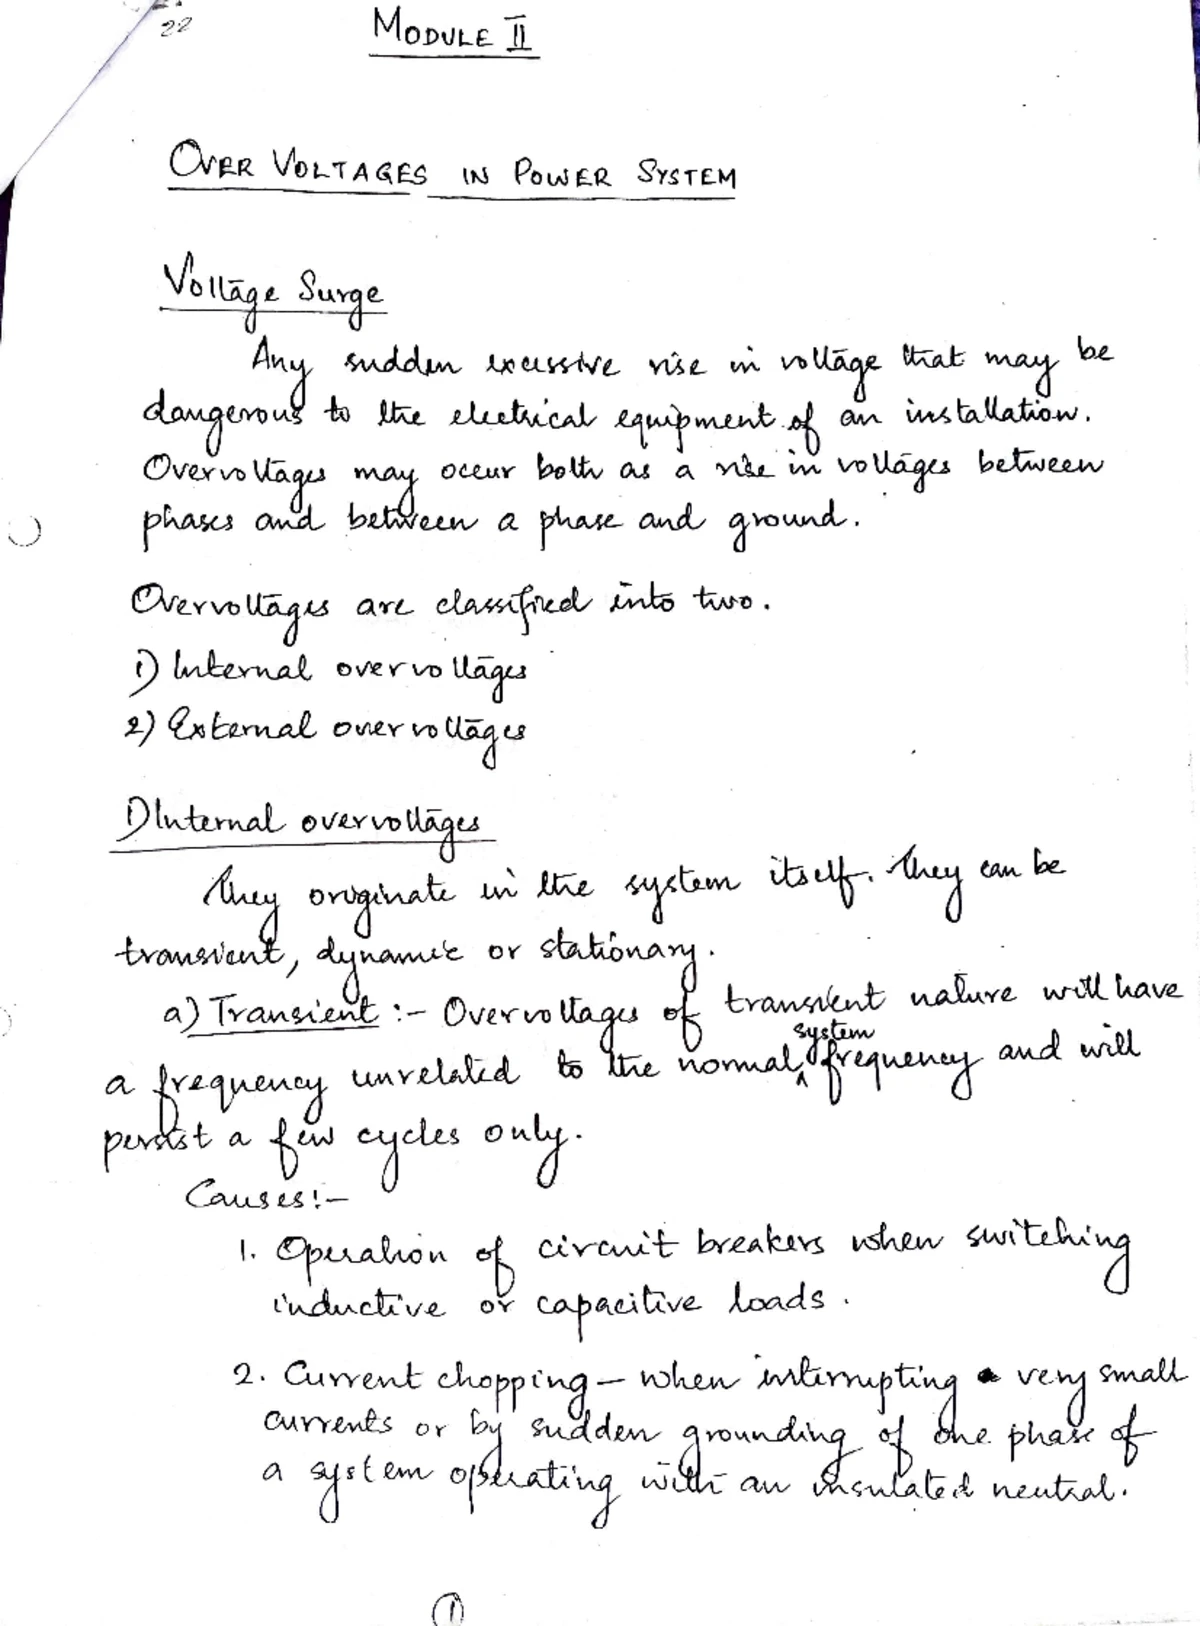 22
MODULE II
OVER VOLTAGES IN POWER SYSTEM
Voltage Surge
Any sudden excessive rise in voltage that may be
dangerous to the electrical equipment of an installation.
Overvoltages may occur both as a rise in voltages between
phases and between a phase and ground.
Overvoltages are classified into two.
1) Internal overvoltages
2) External overvoltages
1) Internal overvoltages
They originate in the system itself. They can be
transient, dynamic or stationary.
a) Transient :- Overvoltages of transient nature will have
a frequency unrelated to the normal system frequency and will
persist a few cycles only.
Causes:-
1. Operation of circuit breakers when switching
inductive or capacitive loads.
2. Current chopping - when interrupting very small
currents or by sudden grounding of one phase of
a system operating with an insulated neutral.
1